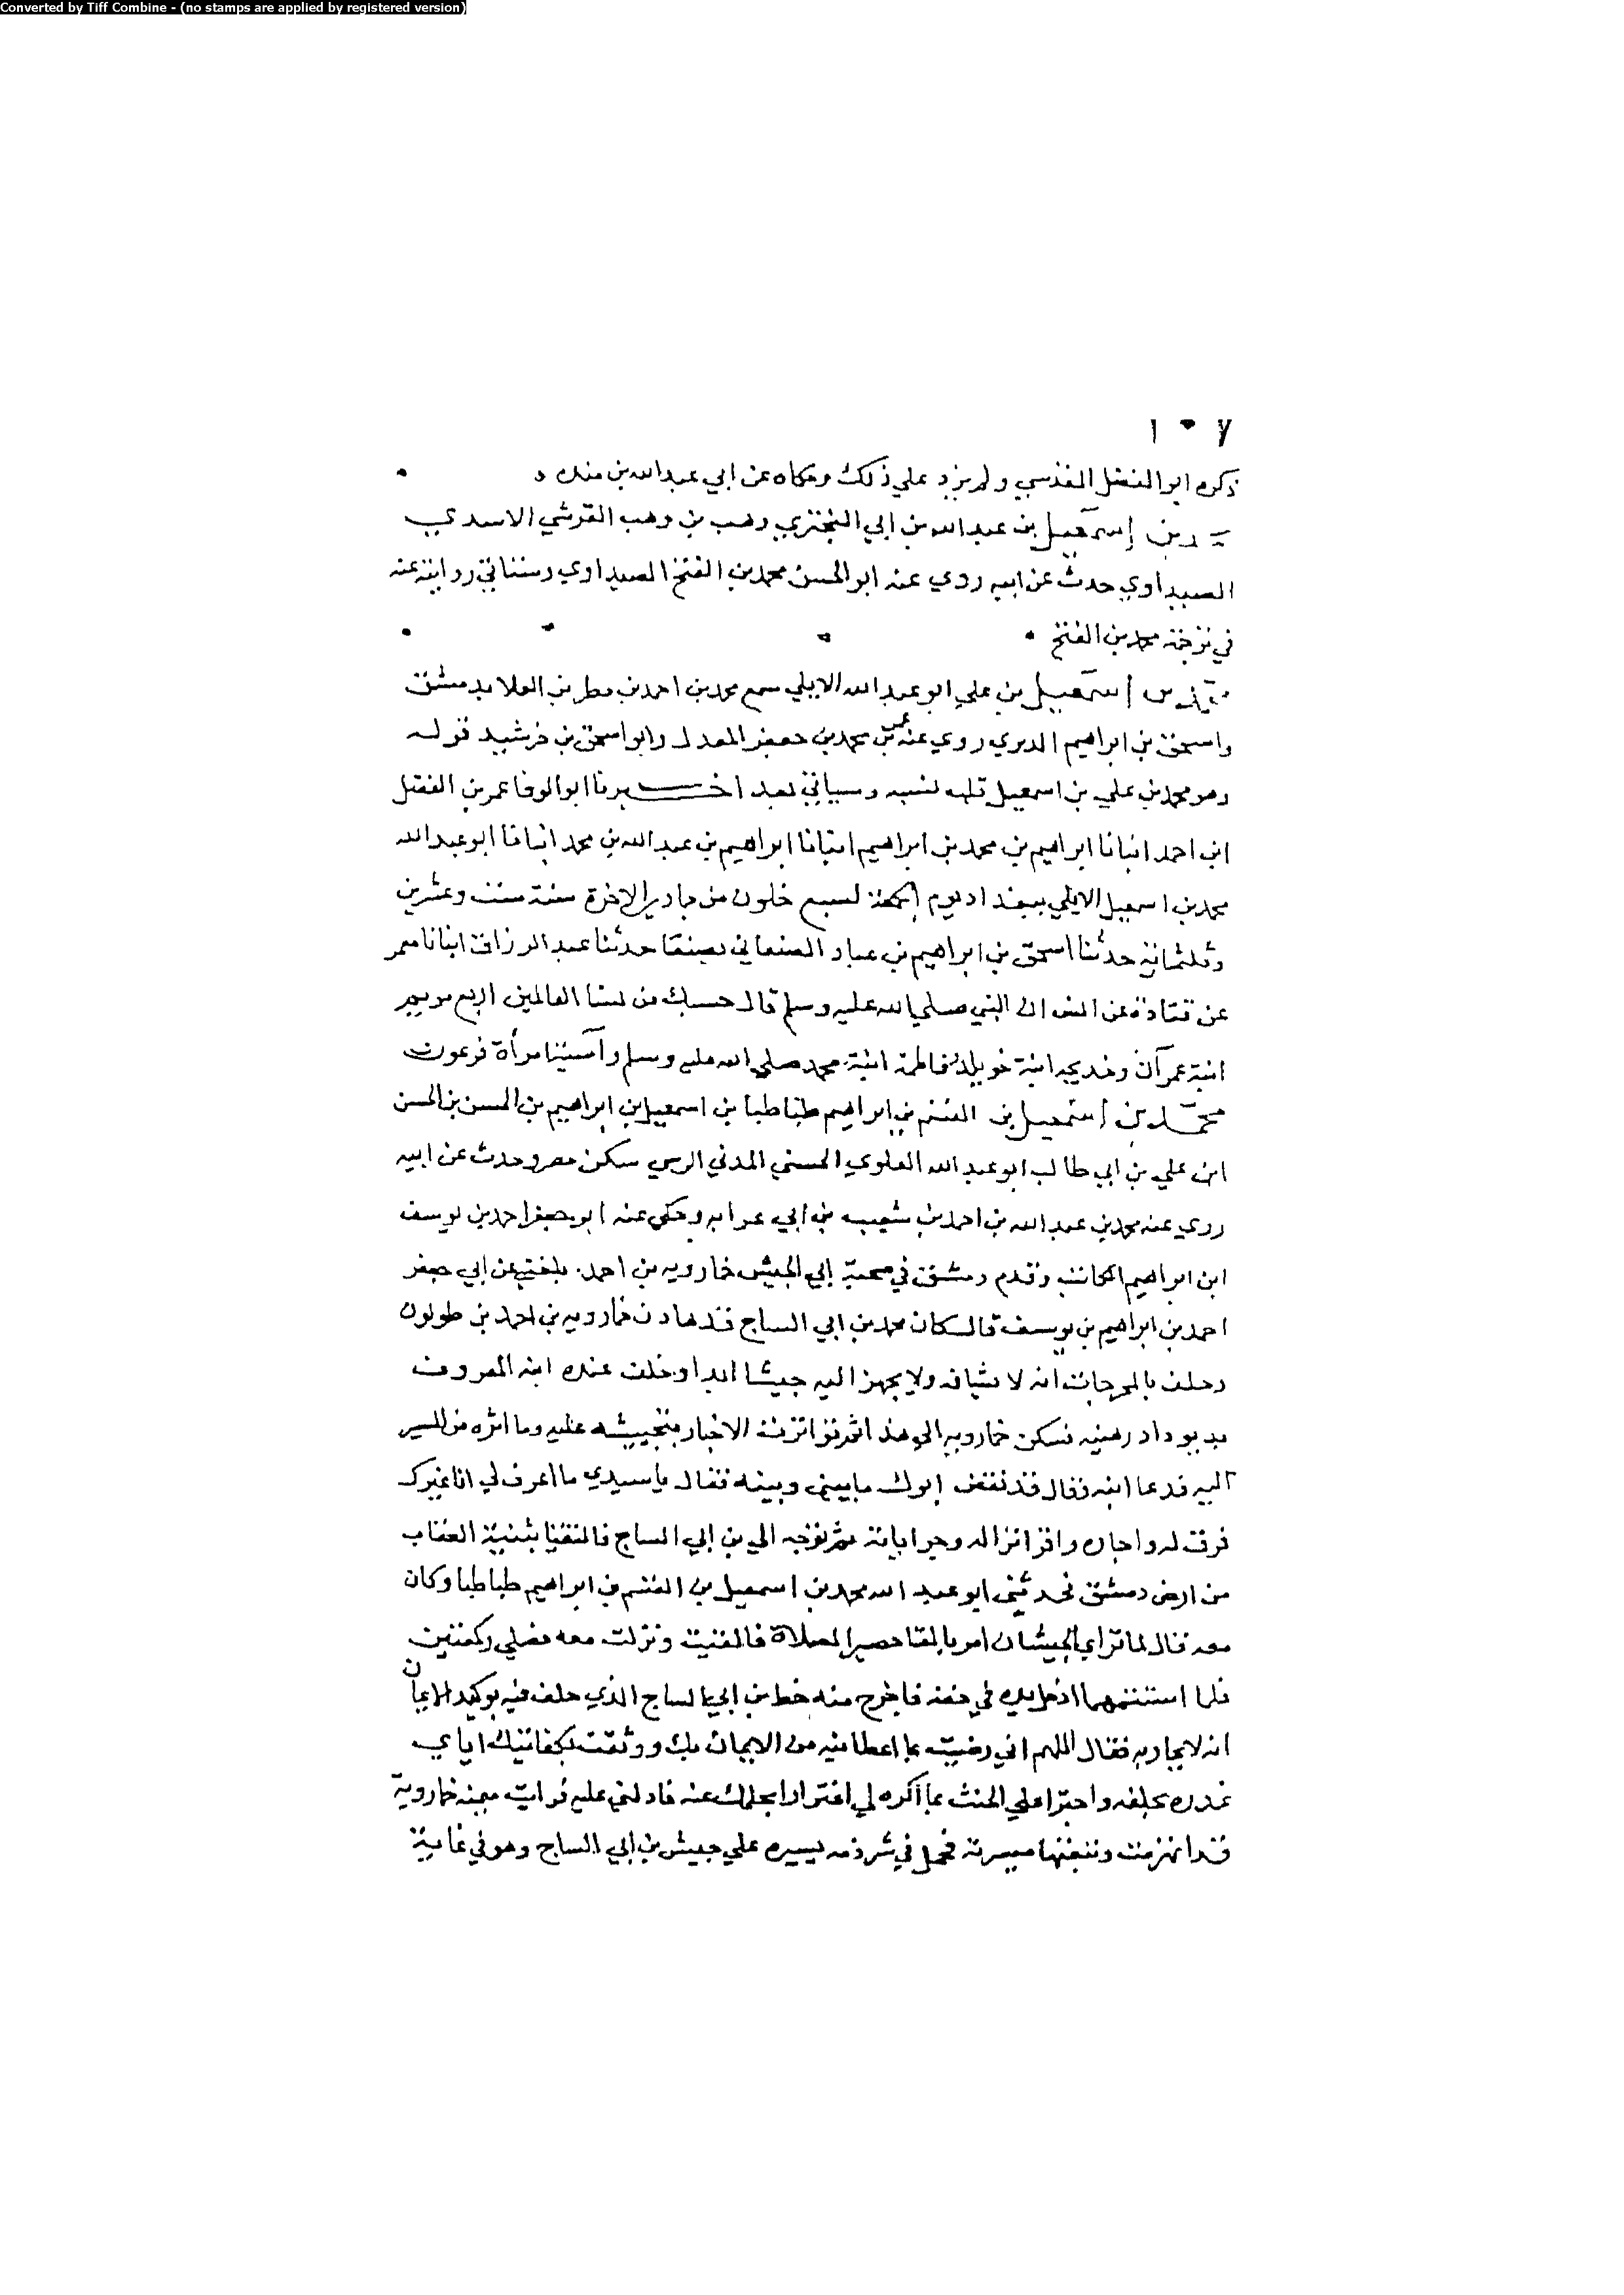 Converted by Tiff Combine - (no stamps are applied by registered version)
١٠٧
ذكره ابو الفضل المقدسي ولم يزد علي ذلك وحكاه عن ابي عبد الله بن منده
إسمعيل بن عبد الله بن ابي البختري وهب بن وهب القرشي الاسدي
الصيداوي حدث عن ابيه روي عنه ابو الحسن محمد بن الفتح الصيداوي وستاتي روايته عنه
في ترجمة محمد بن الفتح
إسمعيل بن علي ابو عبد الله الايلي سمع محمد بن احمد بن مطر بن العلا بدمشق
واسحق بن ابراهيم الدبري روي عنه عمر بن محمد بن جعفر المعدل وابو اسحق بن خرشيد قوله
وهو محمد بن علي بن اسمعيل قلب نسبه وسياتي بعد اخبرنا ابو الوفا عمر بن الفضل
ابن احمد انبانا ابراهيم بن محمد بن ابراهيم انبانا ابراهيم بن عبد الله بن محمد انبانا ابو عبد الله
محمد بن اسمعيل الايلي ببغداد يوم الجمعة لسبع خلون من جمادي الاخرة سنة ست وعشرين
وثلثمائة حدثنا اسحق بن ابراهيم بن عباد الصنعاني بصنعا حدثنا عبد الرزاق انبانا معمر
عن قتادة عن انس ان النبي صلي الله عليه وسلم قال حسبك من نسا العالمين اربع مريم
ابنة عمران وخديجه ابنة خويلد وفاطمة ابنة محمد صلي الله عليه وسلم وآسية امرأة فرعون
محمد بن إسمعيل بن القسم بن ابراهيم طباطبا بن اسمعيل بن ابراهيم بن الحسن بن الحسن
ابن علي بن ابي طالب ابو عبد الله العلوي الحسني المدني الرسي سكن مصر وحدث عن ابيه
روي عنه محمد بن عبد الله بن احمد بن شعيب بن ابي عرابه وحكي عنه ابو جعفر احمد بن يوسف
ابن ابراهيم الكاتب وقدم دمشق في صحبة ابي الجيش خمارويه بن احمد بلغني عن ابي جعفر
احمد بن ابراهيم بن يوسف قال كان محمد بن ابي الساج قد هادن خمارويه بن احمد بن طولون
وحلف بالمحرجات انه لا يشاقه ولا يجهز اليه جيشا ابدا وخلف عنده ابنه المعروف
بديوداد رهينه فسكن خمارويه الي هذا ثم تواترت الاخبار بتجييشه عليه وما اثره من المسير
اليه فدعا ابنه فقال قد نقض ابوك ما بيني وبينه فقال يا سيدي ما اعرف لي ابا غيرك
فرق له واجاره واقر انزاله وجراياته ثم توجه الي بن ابي الساج فالتقيا بثنية العقاب
من ارض دمشق فحدثني ابو عبد الله محمد بن اسمعيل بن القسم بن ابراهيم طباطبا وكان
معه قال لما تراي الجيشان امر بالقا حصير الصلاة فالقيت ونزلت معه فصلي ركعتين
فلما استتمهما ادخل يده في خفه فاخرج منه خط بن ابي الساج الذي حلف فيه بوكيد الايمان
انه لا يحاربه فقال اللهم اني رضيت بما اعطانيه من الايمان بك ووثقت بكفايتك اياي
غدره بحلفه واجترا علي الحنث بما اكده لي اغترارا بحلمك عنه فادلني عليه فرايت ميمنة خمارويه
قد انهزمت وتبعتها ميسرته فحمل في شرذمه يسيره علي جيش بن ابي الساج وهو في غاية